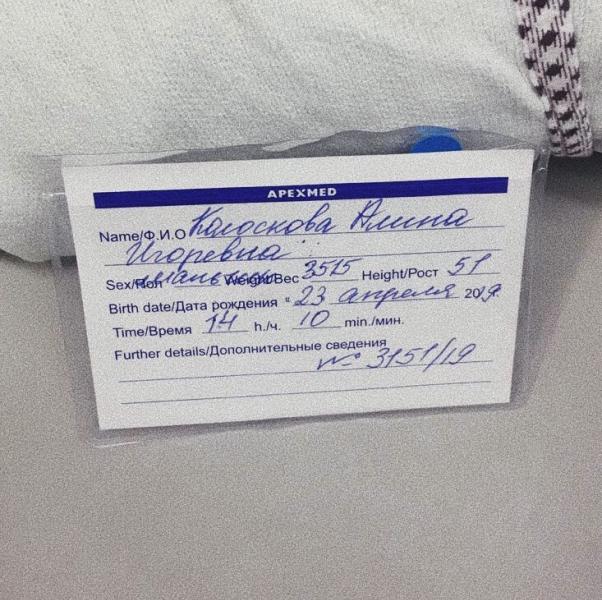 APEXMED
Name/Ф.И.О Колоскова Алина
Игоревна
Sex/Пол мальчик Weight/Вес 3515 Height/Рост 51
Birth date/Дата рождения " 23 апреля 2019.
Time/Время 14 h./ч. 10 min./мин.
Further details/Дополнительные сведения
№ 3151/19